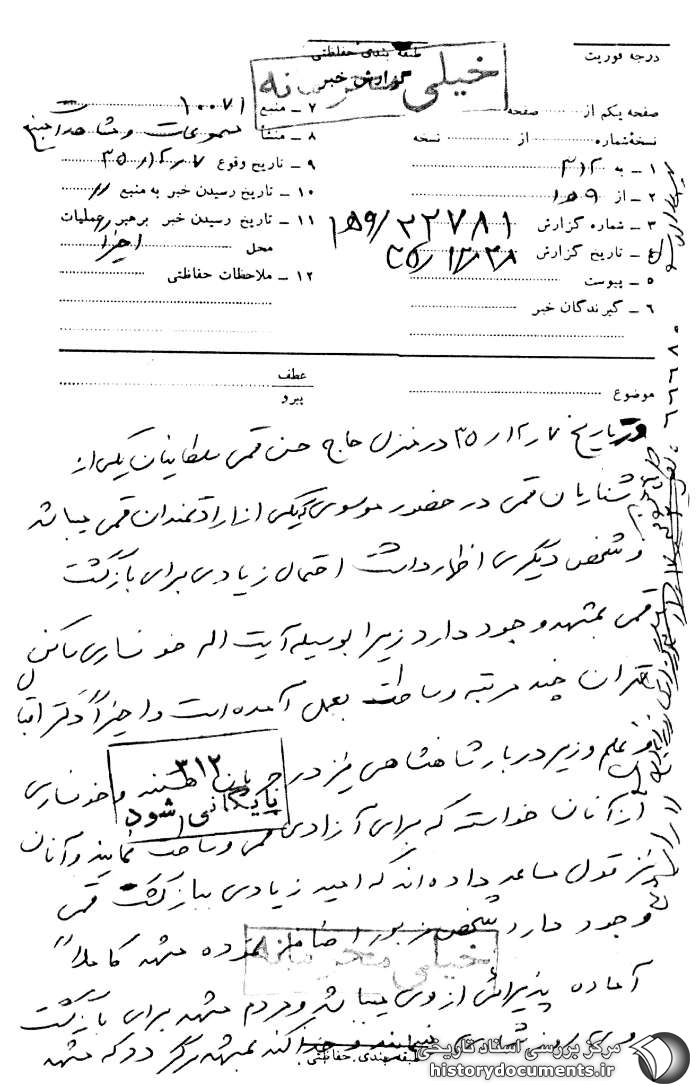 طبقه بندی حفاظتی
درجه فوریت
خیلی محرمانه
گزارش خبر
صفحه یکم از صفحه
نسخه شماره از نسخه
۱ – به ۳۱۲
۲ – از ۱۵۹
۳ – شماره گزارش ۱۵۹/۲۲۷۸۱
۴ – تاریخ گزارش
۵ – پیوست
۶ – گیرندگان خبر
۷ – منبع ۱۰۰۷۱
۸ – منشأ مسموعات و مشاهدات منبع
۹ – تاریخ وقوع ۳۵/۱۲/۷
۱۰ – تاریخ رسیدن خبر به منبع //
۱۱ – تاریخ رسیدن خبر به رهبر عملیات
محل
۱۲ – ملاحظات حفاظتی
موضوع
عطف
پیرو
در تاریخ ۳۵/۱۲/۷ در منزل حاج حسن قمی سلطانیان یکی از
آشنایان قمی در حضور موسوی که یکی از ارادتمندان قمی میباشد
و شخص دیگری اظهار داشت احتمال زیادی برای بازگشت
قمی بمشهد وجود دارد زیرا بوسیله آیت اله خونساری ساکن
تهران چند مرتبه وساطت بعمل آمده است و اخیراً دکتر اقبال
و علم وزیر دربار شاهنشاهی نیز در جریان هستند و خونساری
از آنان خواسته که برای آزادی قمی وساطت نمایند و آنان
نیز قول مساعد داده‌اند که امید زیادی ببازگشت قمی
وجود دارد شخص مزبور اضافه نموده مشهد کاملاً
آماده پذیرائی از وی میباشد و مردم مشهد برای بازگشت
وی روز شماری مینمایند و خدا کند بمشهد برگردد که مشهد
۳۱۲
بایگانی شود
خیلی محرمانه
طبقه بندی حفاظتی
مرکز بررسی اسناد تاریخی
historydocuments.ir